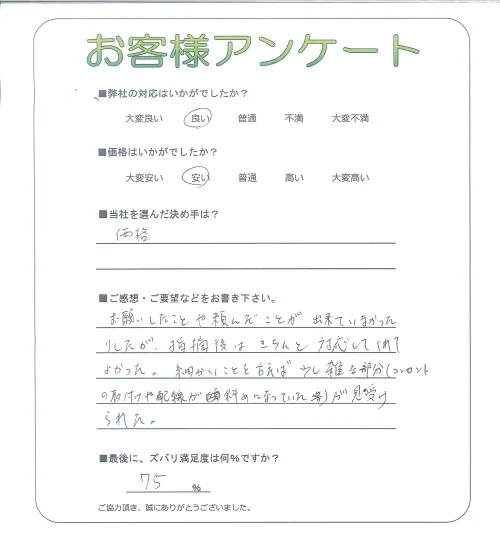 お客様アンケート
■弊社の対応はいかがでしたか？
大変良い 良い 普通 不満 大変不満
■価格はいかがでしたか？
大変安い 安い 普通 高い 大変高い
■当社を選んだ決め手は？
価格
■ご感想・ご要望などをお書き下さい。
お願いしたことや頼んだことが 出来ていなかった
りしたが、指摘後は きちんと 対応してくれて
よかった。細かいことを言えば 少し雑な部分(コンセント
の取付や配線が斜めになっていた等)が見受け
られた。
■最後に、ズバリ満足度は何％ですか？
75 %
ご協力頂き、誠にありがとうございました。